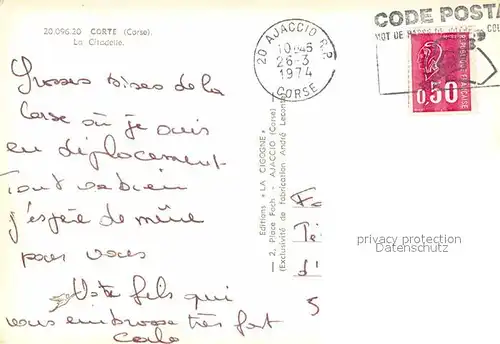 20.096.20 CORTE (Corse).
La Citadelle.
Grosses bises de la
Corse où je suis
en déplacement
Tout va bien
j'espère de même
pour vous
Votre fils qui
vous embrasse très fort
20 AJACCIO R.P.
10H45
26-3
1974
CORSE
CODE POSTA
MOT DE
RÉPUBLIQUE FRANÇAISE
0,50
Editions « LA CIGOGNE »
— 2, Place Foch - AJACCIO (Corse) —
(Exclusivité de Fabrication André Leconte)
d'
5
privacy protection
Datenschutz